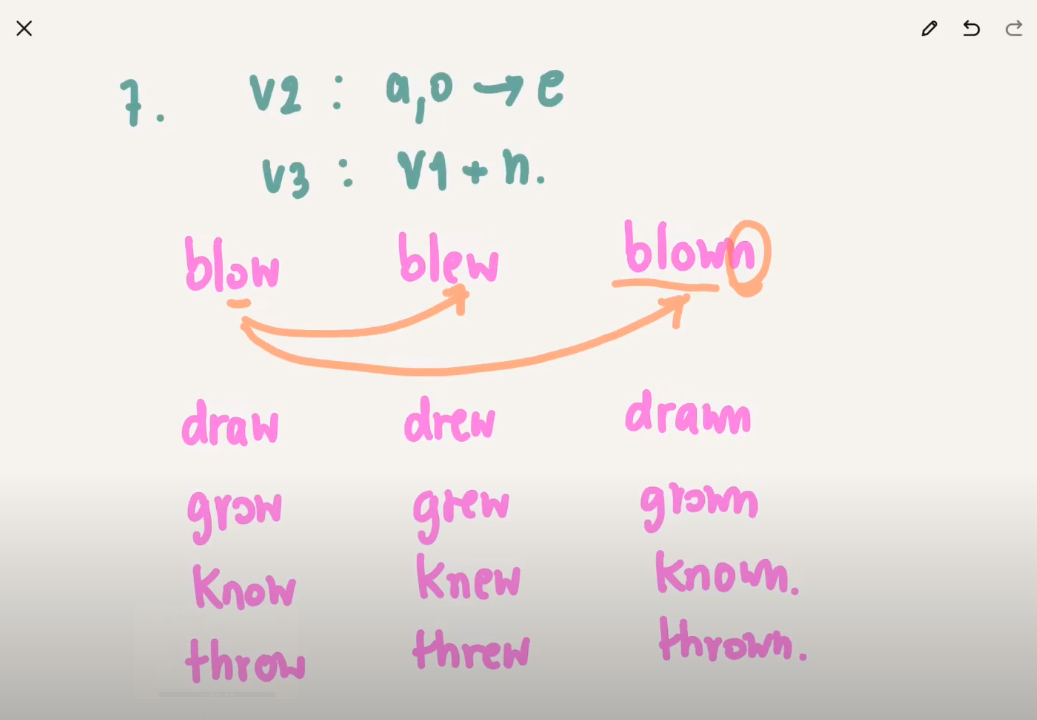 7. v2 : a,o → e
v3 : v1 + n.
blow blew blown
draw drew drawn
grow grew grown
know knew known.
throw threw thrown.